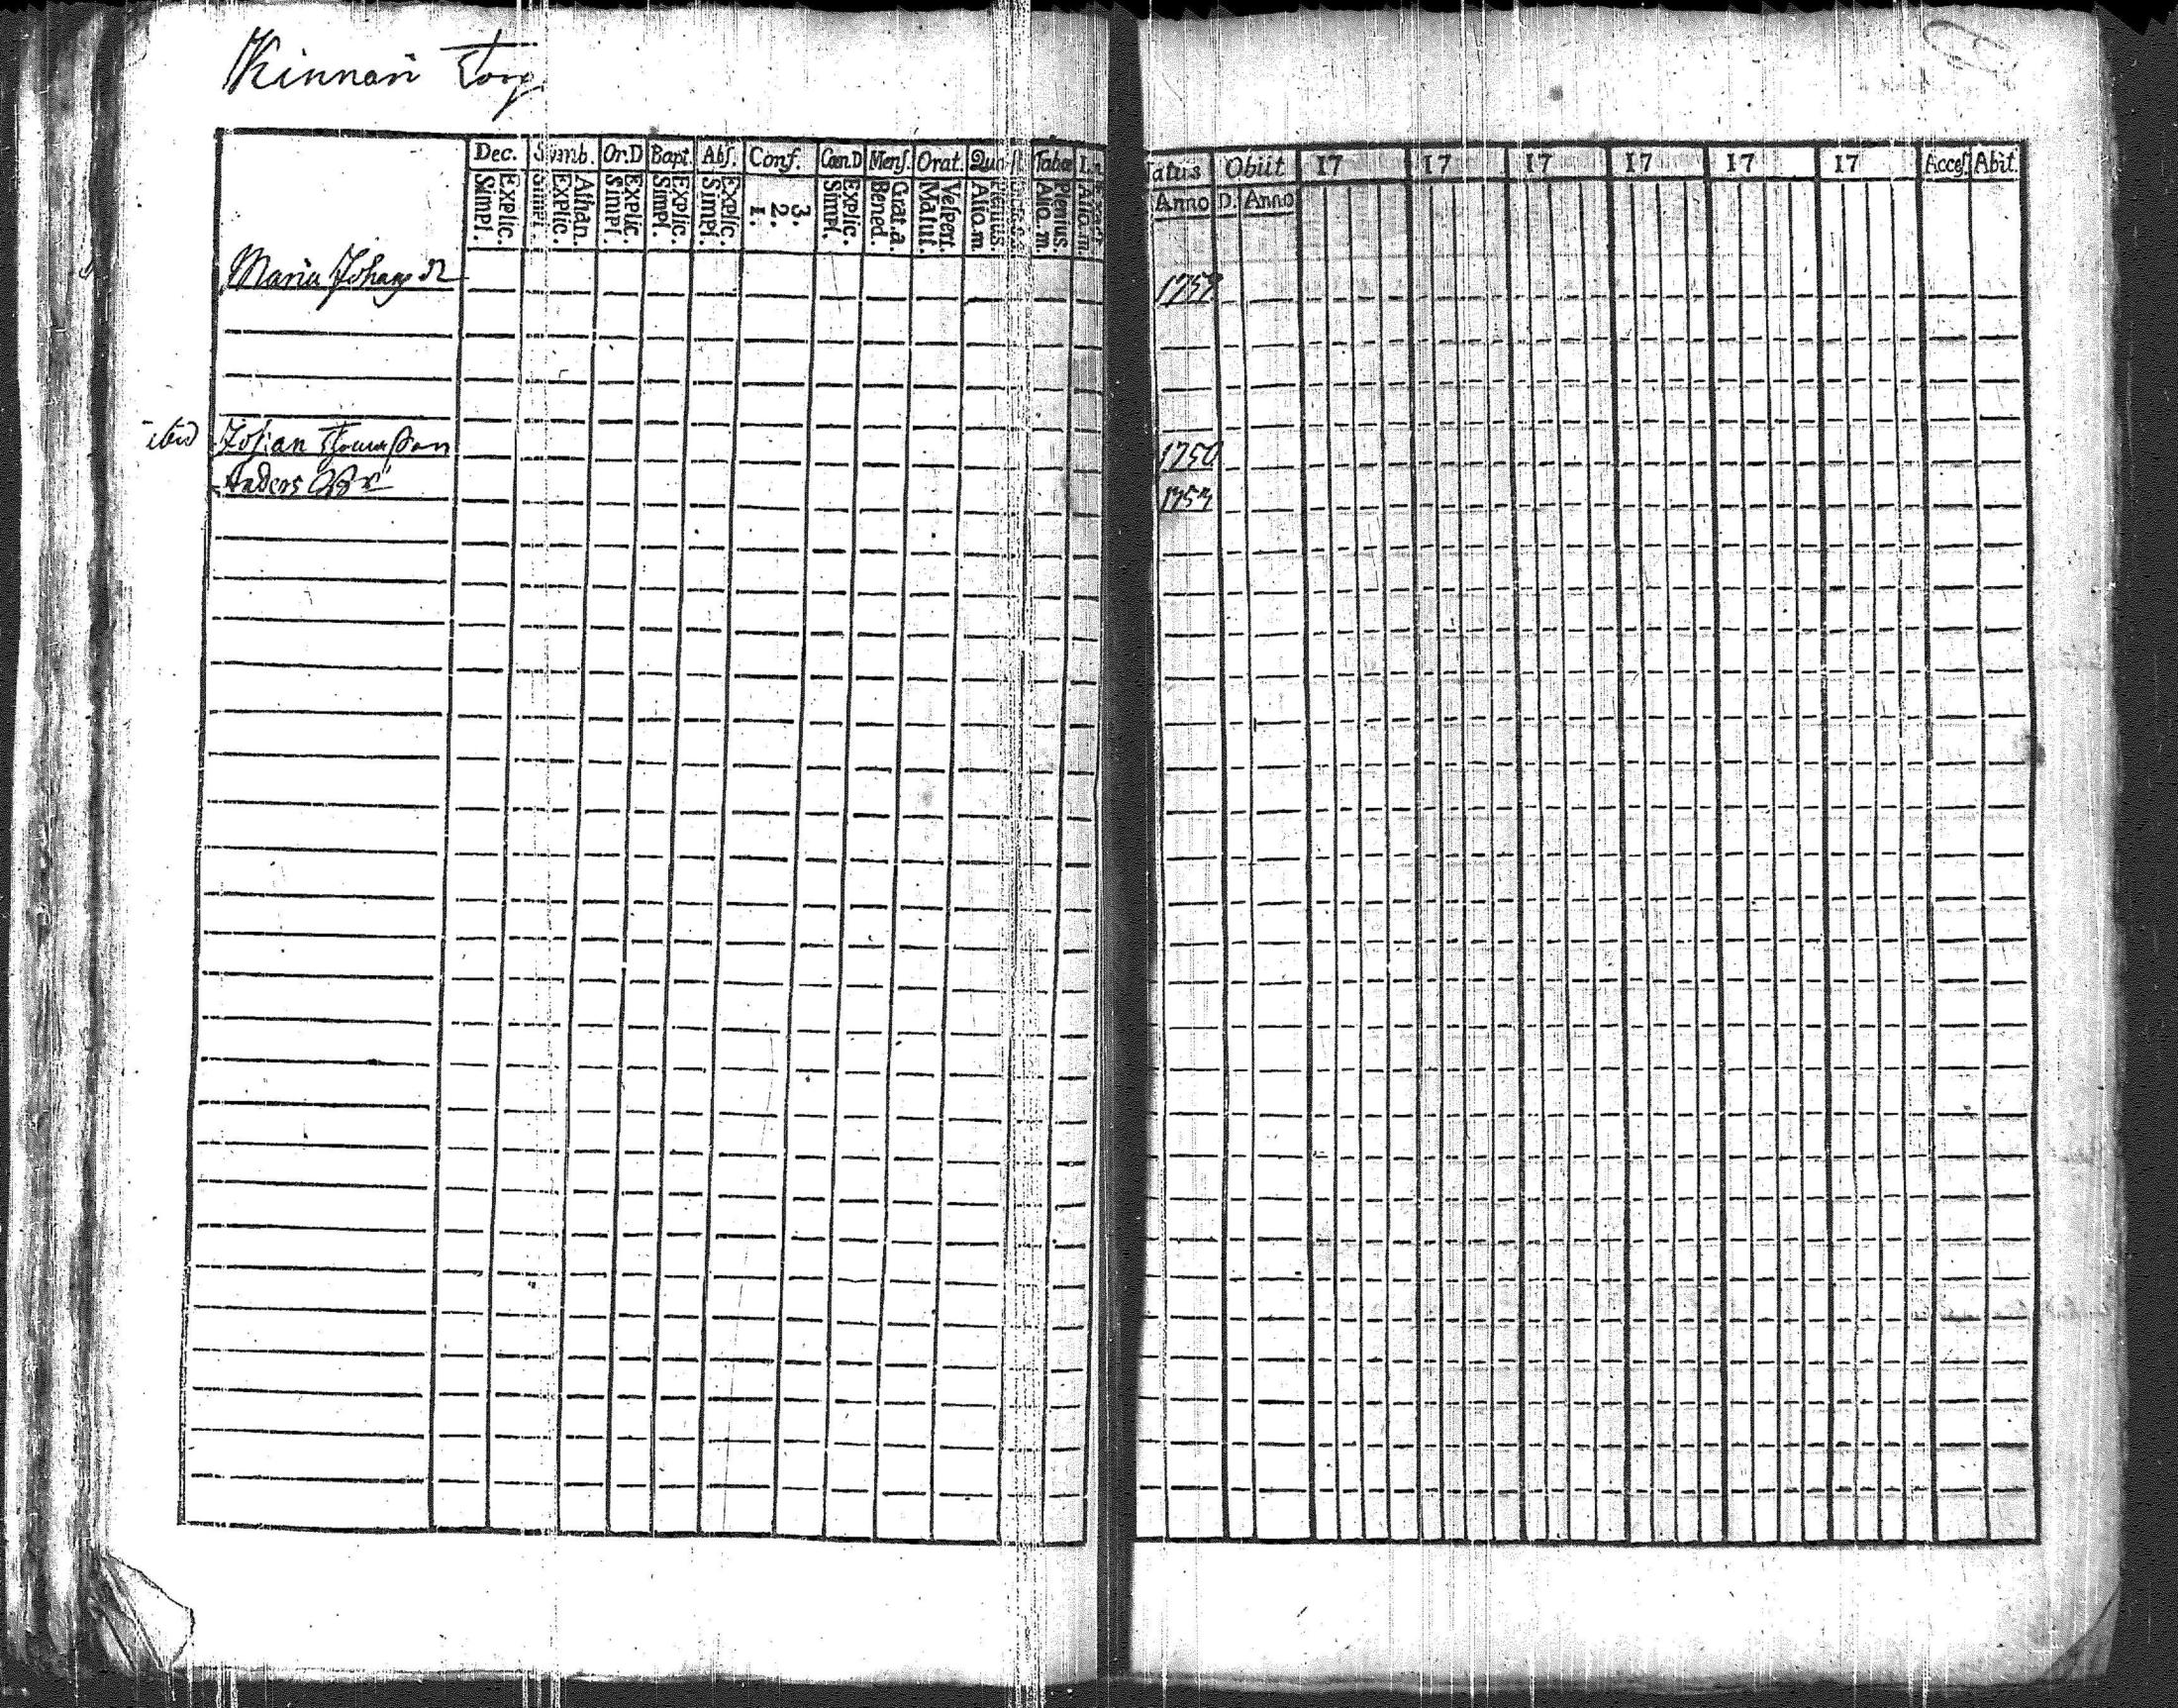 Kinnari Torp
Dec. Symb. Or.D Bapt. Abſ. Conf. Can.D Menſ. Orat. Tabæ
Simpl. Explic. Simpl. Explic. Athan. Simpl. Explic. Simpl. Explic. Simpl. Explic. 1. 2. 3. Simpl. Explic. Bened. Grat.a. Matut. Veſpert. Alio.m. Alio.m. Plenius. Alio.m.
Natus Obiit 17 17 17 17 17 17 Acceſ. Abit.
Anno D. Anno
Maria Johans dr 1757
ibid Johan 1750
Anders 1753